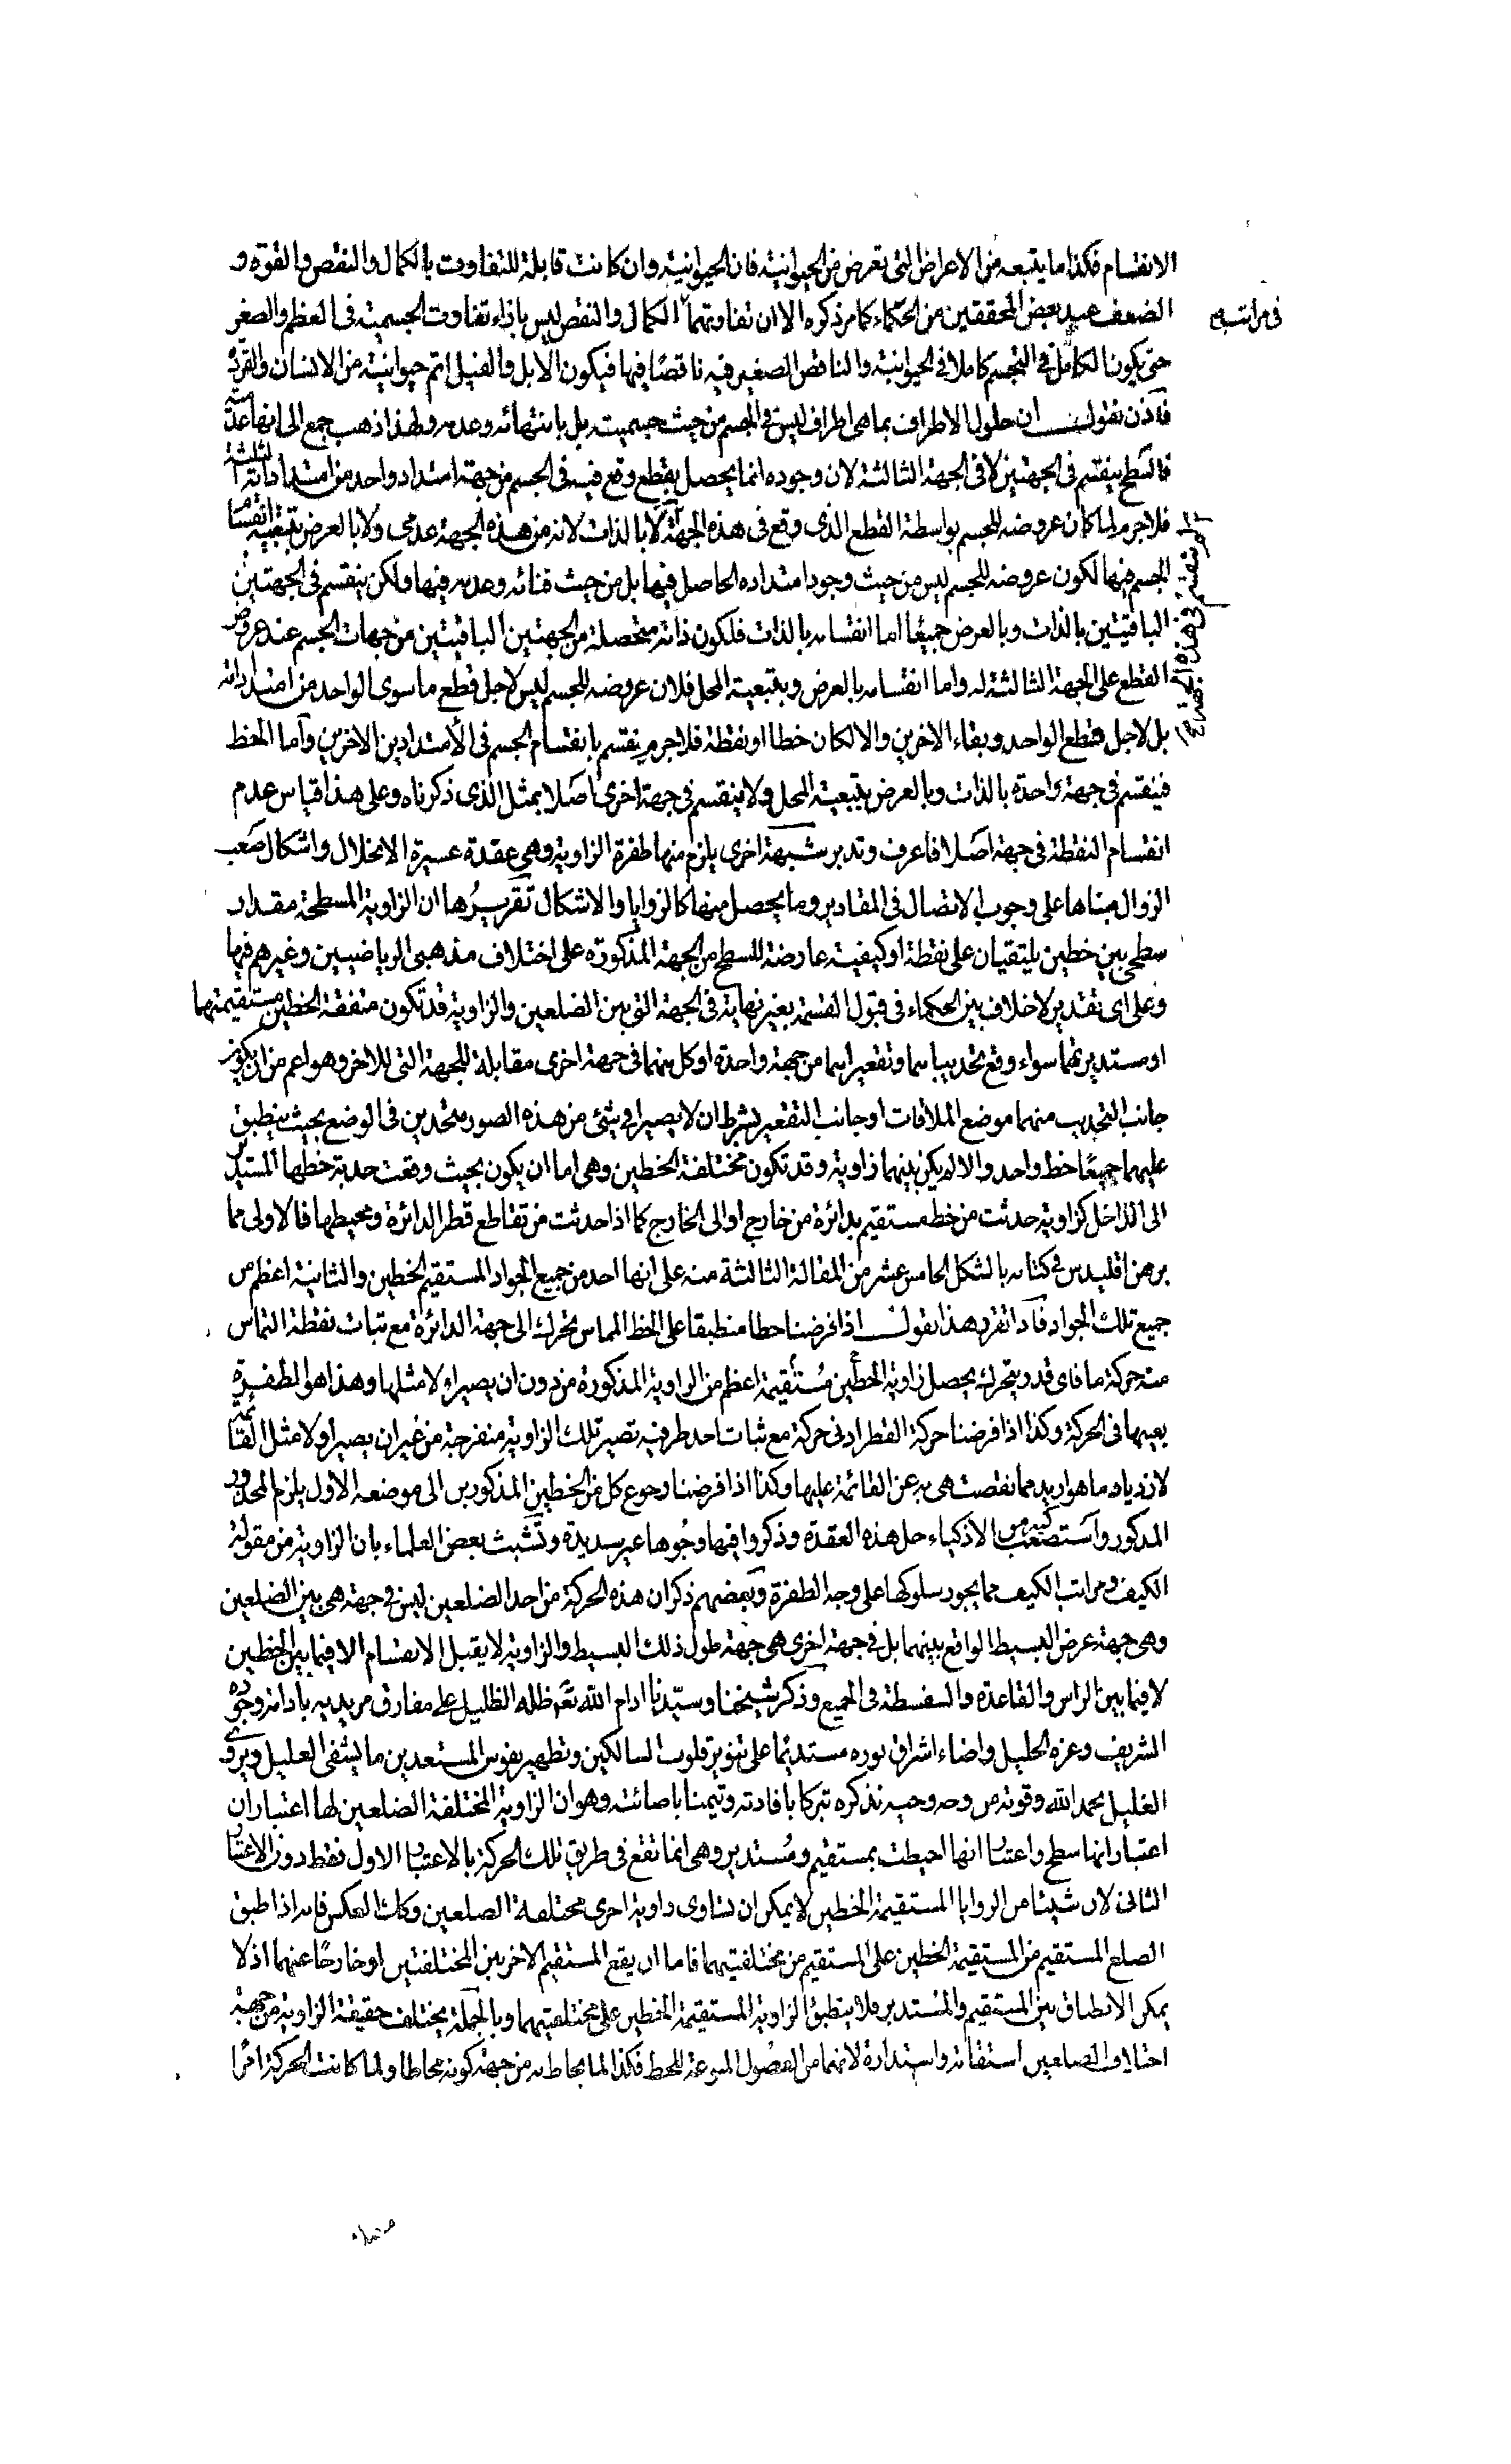 الانقسام فكذا ما يتبعه من الاعراض التى تعرض من الحيوانية فان الحيوانية وان كانت قابلة للتفاوت بالكمال والنقص والقوة و
الضعف عند بعض المحققين من الحكماء كما مر ذكره الا ان تفاوتهما بالكمال والنقص ليس بازاء تفاوت الجسمية فى العظم والصغر
فى مراتبه
حتى يكون الكامل فى التجسم كاملا فى الحيوانية والناقص الصغير فيه ناقصًا فيها فيكون الابل والفيل اتم حيوانية من الانسان والقرد
فاذن نقول ان حلول الاطراف بما هى اطراف ليس فى الجسم من حيث جسميته بل بانتهائه وعدمه ولهذا ذهب جمع الى انها عدمية
فالسطح ينقسم فى الجهتين لا فى الجهة الثالثة لان وجوده انما يحصل بقطع وقع فيه فى الجسم من جهة امتداد واحد من امتداداته الثلثة
فلاجرم لما كان عروضه للجسم بواسطة القطع الذى وقع فى هذه الجهة لا بالذات لانه من هذه الجهة عدمى ولا بالعرض بتبعية انقسام
لم ينقسم فى هذه الجهة
الجسم فيها لكون عروضه للجسم ليس من حيث وجود امتداده الحاصل فيها بل من حيث فنائه وعدمه فيها ولكن ينقسم فى الجهتين
الباقيتين بالذات وبالعرض جميعًا اما انقسامه بالذات فلكون ذاته متحصلة من الجهتين الباقيتين من جهات الجسم عند عروض
القطع على الجهة الثالثة له واما انقسامه بالعرض وبتبعية المحل فلان عروضه للجسم ليس لاجل قطع ما سوى الواحد من امتداداته
بل لاجل قطع الواحد وبقاء الاخرين والا لكان خطا او نقطة فلاجرم ينقسم بانقسام الجسم فى الأمتدادين الاخرين وأما الخط
فينقسم فى جهة واحدة بالذات وبالعرض بتبعية المحل ولا ينقسم فى جهة اخرى اصلا بمثل الذى ذكرناه وعلى هذا قياس عدم
انقسام النقطة فى جهة اصلا فاعرف وتدبر شبهة اخرى يلزم منها طفرة الزاوية وهى عقدة عسيرة الانحلال واشكال صعب
الزوال مبناها على وجوب الاتصال فى المقادير وما يحصل منها كالزوايا والاشكال تقريرُها ان الزاوية المسطحة مقدار
سطحى بين خطين يلتقيان على نقطة او كيفية عارضة للسطح من الجهة المذكورة على اختلاف مذهبى الرياضيين وغيرهم فيها
وعلى اى تقدير لاخلاف بين الحكماء فى قبول القسمة بغير نهاية فى الجهة التى بين الضلعين والزاوية قد تكون متفقة الخطين مستقيمتها
او مستديرتهما سواء وقع تحديباهما وتقعيراهما من جهة واحدة او كل منهما فى جهة اخرى مقابلة للجهة التى للاخر وهو اعم من ان يكون
جانب التحديب منهما موضع الملاقات او جانب التقعير بشرط ان لا يصيرا فى شئ من هذه الصور متحدين فى الوضع بحيث ينطبق
عليهما جميعًا خط واحد والا لم يكن بينهما زاوية وقد تكون مختلفة الخطين وهى اما ان يكون بحيث وقعت حدبة خطها المستدير
الى الداخل كزاوية حدثت من خط مستقيم بدائرة من خارج او الى الخارج كما اذا حدثت من تقاطع قطر الدائرة ومحيطها فالاولى مما
برهن اقليدس فى كتابه بالشكل الخامس عشر من المقالة الثالثة منه على انها احد من جميع الحواد المستقيم الخطين والثانية اعظم من
جميع تلك الحواد فاذا تقرر هذا نقول اذا فرضنا خطا منطبقا على الخط المماس تحرك الى جهة الدائرة مع ثبات نقطة التماس
منه حركة ما فاى قدر يتحرك يحصل زاوية الخطين مُستقيمة اعظم من الزاوية المذكورة من دون ان يصير اولا مثلها وهذا هو الطفرة
بعينها فى الحركة وكذا اذا فرضنا حركة القطر ادنى حركة مع ثبات احد طرفيه تصير تلك الزاوية منفرجة من غير ان يصير اولا مثل القائمة
لازدياد ما هو ازيد مما نقصت هى به عن القائمة عليها وكذا اذا فرضنا رجوع كل من الخطين المذكورين الى موضعه الاول يلزم المحذور
المذكور واستصعب كثير من الاذكياء حل هذه العقدة وذكروا فيها وجُوها غير سديدة وتشبث بعض العلماء بان الزاوية من مقولة
الكيف ومراتب الكيف مما يجوز سلوكها على وجه الطفرة وبعضهم ذكر ان هذه الحركة من احد الضلعين ليس فى جهة هى بين الضلعين
وهى جهة عرض البسيط الواقع بينهما بل فى جهة اخرى هى جهة طول ذلك البسيط والزاوية لا يقبل الانقسام الا فيما بين الخطين
لا فيما بين الراس والقاعدة والسفسطة فى الجميع وذكر شيخنا وسيّدنا ادام الله تعٰ ظله الظليل على مفارق مريديه بادامة وجوده
الشريف وعزه الجليل واضاء اشراق نوره مستديمًا على تنوير قلوب السالكين وتطهير نفوس المستعدين ما يشفى العليل ويروى
الغليل بحمد الله وقوته من وحه وحيه نذكره تبركا بافادته وتيمنا باصابته وهو ان الزاوية المختلفة الضلعين لها اعتباران
اعتبار انها سطح واعتبار انها احيطت بمستقيم ومُستدير وهى انما تقع فى طريق تلك الحركة بالاعتبار الاول فقط دون الاعتبار
الثانى لان شيئا من الزوايا المستقيمة الخطين لا يمكن ان تساوى زاوية اخرى مختلفة الضلعين وكذا العكس فانه اذا طبق
الضلع المستقيم من المستقيمة الخطين على المستقيم من مختلفتيهما فاما ان يقع المستقيم الاخر بين المختلفتين او خارجًا عنهما اذ لا
يمكن الانطباق بين المستقيم والمُستدير فلا ينطبق الزاوية المستقيمة الخطين على مختلفتيهما وبالجملة يختلف حقيقة الزاوية من جهة
اختلاف الضلعين استقامة واستدارة لانهما من الفصُول المنوعة للخط فكذا لما يحاط به من جهة كونه محاطا ولما كانت الحركة امرا